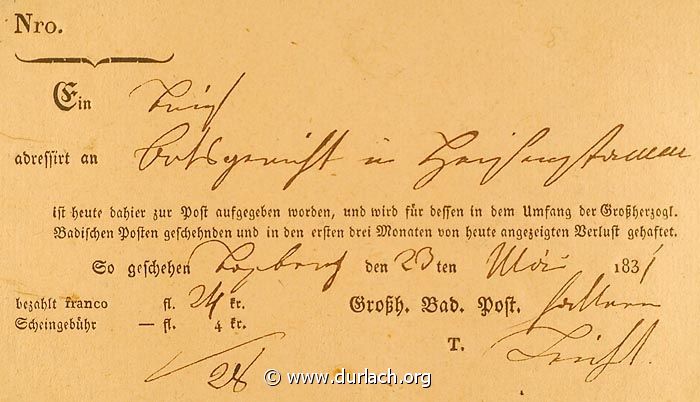 Nro.
Ein Brief
adressirt an Ortsgericht in
ist heute dahier zur Post aufgegeben worden, und wird für dessen in dem Umfang der Großherzogl.
Badischen Posten geschehnden und in den ersten drei Monaten von heute angezeigten Verlust gehaftet.
So geschehen den 23ten Mai 1831
bezahlt franco fl. 24 kr. Großh. Bad. Post.
Scheingebühr — fl. 4 kr.
T.
28
© www.durlach.org